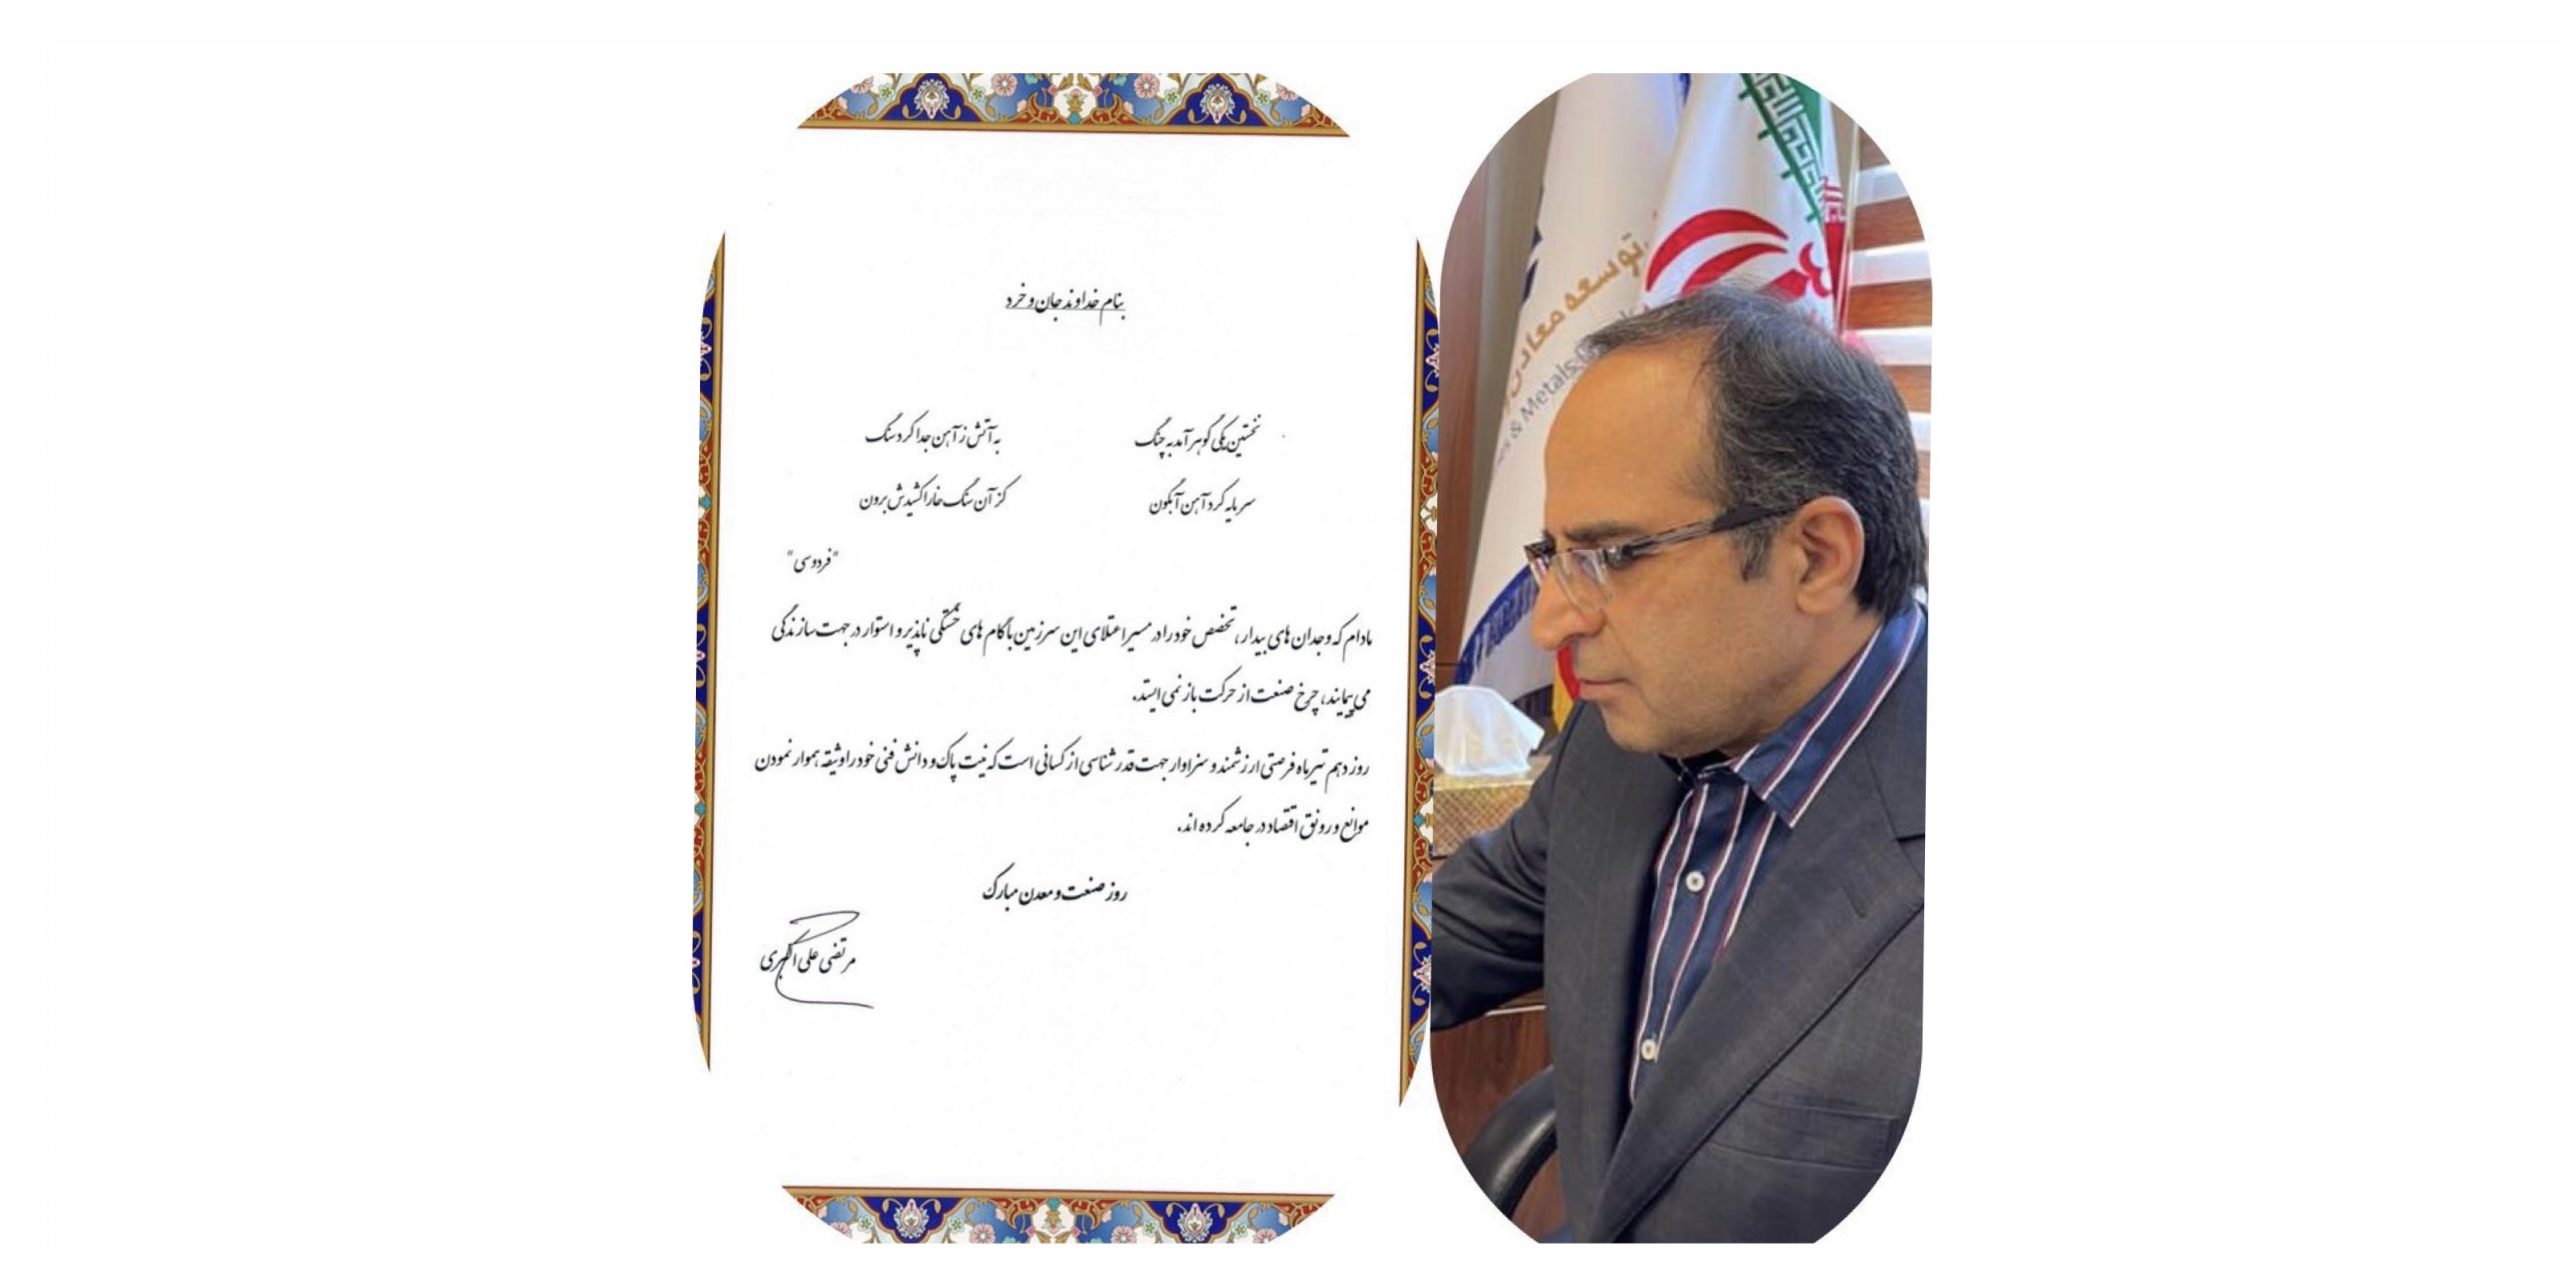 بنام خداوند جان و خرد
نخستین یکی گوهر آمد به چنگ به آتش ز آهن جدا کرد سنگ
سر مایه کرد آهن آبگون کز آن سنگ خارا کشیدش برون
"فردوسی"
مادام که وجدان های بیدار، تخصص خود را در مسیر اعتلای این سرزمین با گام های خستگی ناپذیر و استوار در جهت سازندگی
می پیمایند، چرخ صنعت از حرکت باز نمی ایستد.
روز دهم تیرماه فرصتی ارزشمند و سزاوار جهت قدرشناسی از کسانی است که نیت پاک و دانش فنی خود را وثیقه هموار نمودن
موانع و رونق اقتصاد در جامعه کرده اند.
روز صنعت و معدن مبارک
مرتضی علی اکبری
توسعه معادن
& Metals